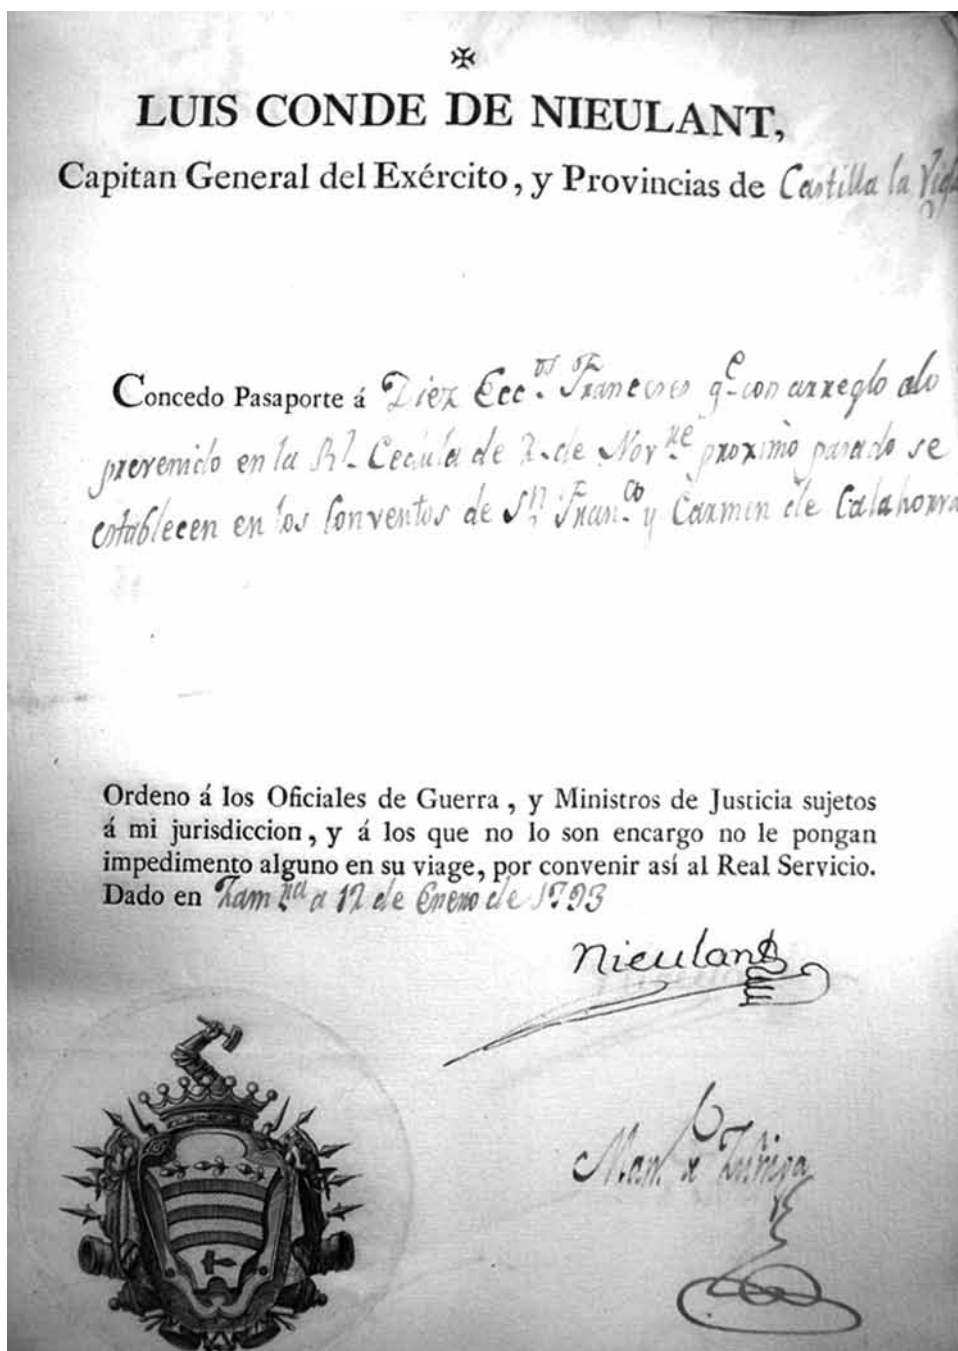 LUIS CONDE DE NIEULANT,
Capitan General del Exército, y Provincias de Castilla la
Concedo Pasaporte á Diez Ecc.os Franceses q.e con arreglo alo
prevenido en la Rl. Cedula de 2. de Nov.re proximo pasado se
establecen en los Conventos de Sn. Fran.co y Carmen de Calahorra
Ordeno á los Oficiales de Guerra, y Ministros de Justicia sujetos
á mi jurisdiccion, y á los que no lo son encargo no le pongan
impedimento alguno en su viage, por convenir así al Real Servicio.
Dado en Zam.ra a 12 de Enero de 1793
Nieulant
Man.l de Zuñiga